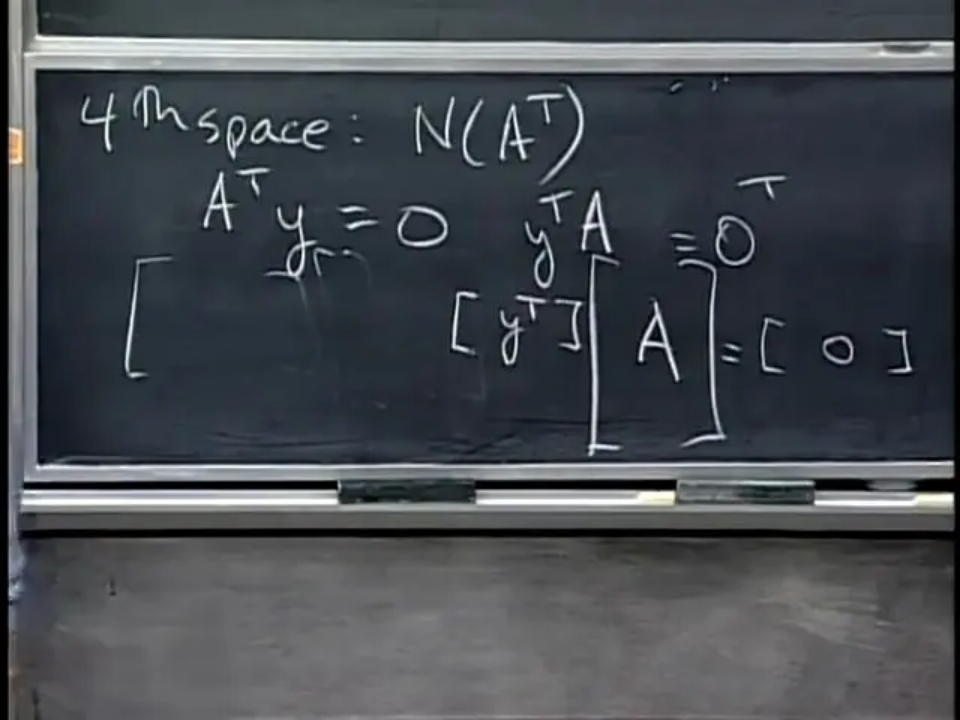 4th space: N(Aᵀ)
Aᵀy = 0 yᵀA = 0ᵀ
[ [ yᵀ ] [ A ] = [ 0 ]